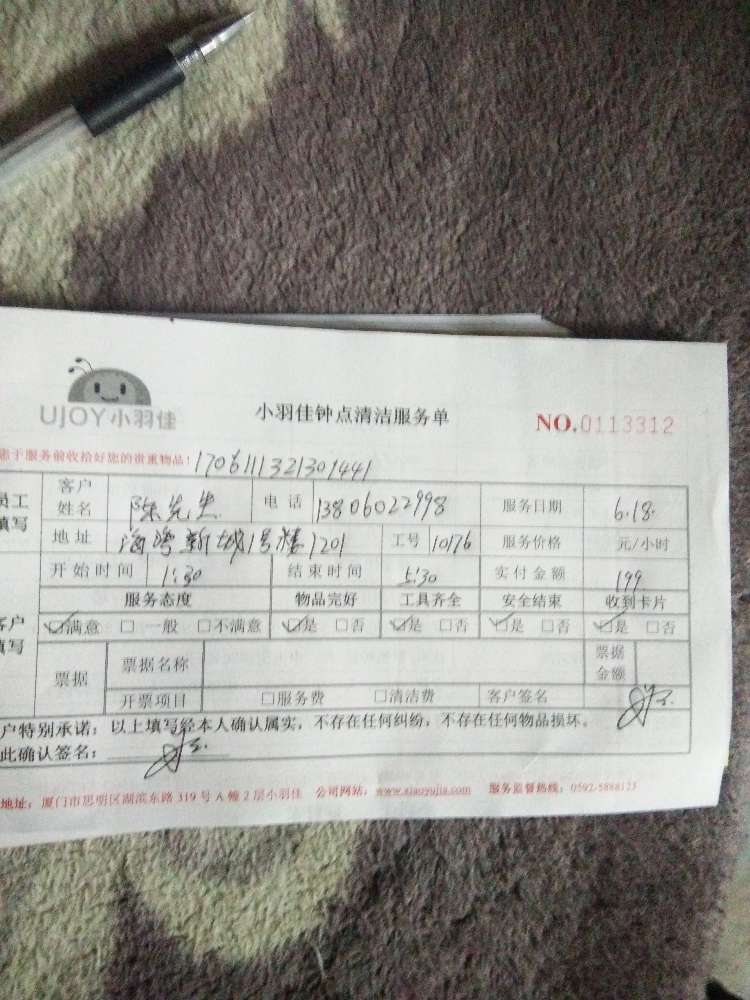 UJOY小羽佳
小羽佳钟点清洁服务单
NO.0113312
于服务前收拾好您的贵重物品！1706111321301441
员工填写 客户姓名 陈先生 电话 13806022998 服务日期 6.18.
地址 海湾新城1号楼1201 工号 10176 服务价格 元/小时
开始时间 1:30 结束时间 5:30 实付金额 199
服务态度 物品完好 工具齐全 安全结束 收到卡片
客户填写 ☑满意 □一般 □不满意 ☑是 □否 ☑是 □否 ☑是 □否 ☑是 □否
票据 票据名称 票据金额
开票项目 □服务费 □清洁费 客户签名
户特别承诺：以上填写经本人确认属实，不存在任何纠纷，不存在任何物品损坏。
此确认签名：
地址：厦门市思明区湖滨东路319号A幢2层小羽佳 公司网站：www.xiaoyujia.com 服务监督热线：0592-5888123